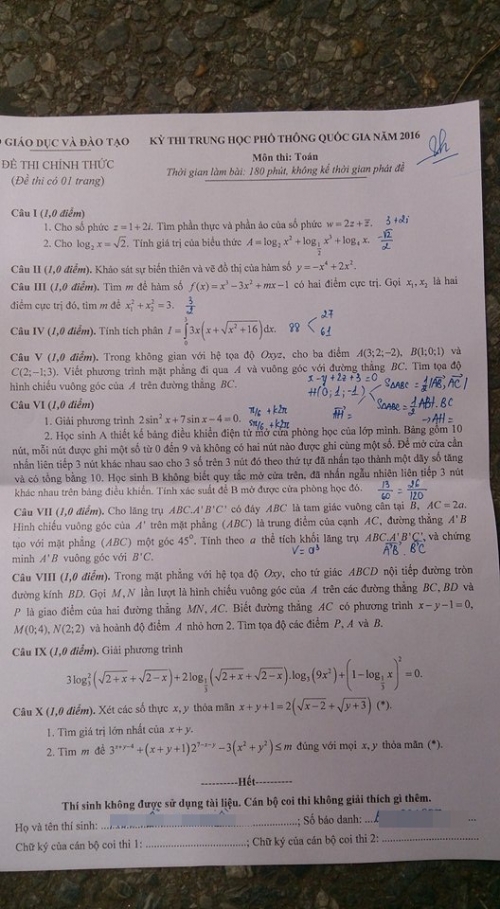 GIÁO DỤC VÀ ĐÀO TẠO KỲ THI TRUNG HỌC PHỔ THÔNG QUỐC GIA NĂM 2016
ĐỀ THI CHÍNH THỨC Môn thi: Toán
(Đề thi có 01 trang) Thời gian làm bài: 180 phút, không kể thời gian phát đề
Câu I (1,0 điểm)
1. Cho số phức z = 1 + 2i. Tìm phần thực và phần ảo của số phức w = 2z + z̄. 3+2i
2. Cho log₂ x = √2. Tính giá trị của biểu thức A = log₂ x² + log_{1/2} x³ + log₄ x. -√2/2
Câu II (1,0 điểm). Khảo sát sự biến thiên và vẽ đồ thị của hàm số y = −x⁴ + 2x².
Câu III (1,0 điểm). Tìm m để hàm số f(x) = x³ − 3x² + mx − 1 có hai điểm cực trị. Gọi x₁, x₂ là hai
điểm cực trị đó, tìm m để x₁² + x₂² = 3. 3/2
Câu IV (1,0 điểm). Tính tích phân I = ∫₀³ 3x(x + √(x² + 16))dx. 88 < 27 61
Câu V (1,0 điểm). Trong không gian với hệ tọa độ Oxyz, cho ba điểm A(3;2;−2), B(1;0;1) và
C(2;−1;3). Viết phương trình mặt phẳng đi qua A và vuông góc với đường thẳng BC. Tìm tọa độ
hình chiếu vuông góc của A trên đường thẳng BC. x-y+2z+3=0
H(0;1;-1)
S△ABC = 1/2 |AB, AC|
S△ABC = 1/2 AH. BC
→ AH =
Câu VI (1,0 điểm)
1. Giải phương trình 2sin² x + 7sin x − 4 = 0. π/6 + k2π
5π/6 + k2π
2. Học sinh A thiết kế bảng điều khiển điện tử mở cửa phòng học của lớp mình. Bảng gồm 10
nút, mỗi nút được ghi một số từ 0 đến 9 và không có hai nút nào được ghi cùng một số. Để mở cửa cần
nhấn liên tiếp 3 nút khác nhau sao cho 3 số trên 3 nút đó theo thứ tự đã nhấn tạo thành một dãy số tăng
và có tổng bằng 10. Học sinh B không biết quy tắc mở cửa trên, đã nhấn ngẫu nhiên liên tiếp 3 nút
khác nhau trên bảng điều khiển. Tính xác suất để B mở được cửa phòng học đó. 13/60 = 26/120
Câu VII (1,0 điểm). Cho lăng trụ ABC.A'B'C' có đáy ABC là tam giác vuông cân tại B, AC = 2a.
Hình chiếu vuông góc của A' trên mặt phẳng (ABC) là trung điểm của cạnh AC, đường thẳng A'B
tạo với mặt phẳng (ABC) một góc 45°. Tính theo a thể tích khối lăng trụ ABC.A'B'C' và chứng
minh A'B vuông góc với B'C. V = a³ A'B. B'C
Câu VIII (1,0 điểm). Trong mặt phẳng với hệ tọa độ Oxy, cho tứ giác ABCD nội tiếp đường tròn
đường kính BD. Gọi M, N lần lượt là hình chiếu vuông góc của A trên các đường thẳng BC, BD và
P là giao điểm của hai đường thẳng MN, AC. Biết đường thẳng AC có phương trình x − y − 1 = 0,
M(0;4), N(2;2) và hoành độ điểm A nhỏ hơn 2. Tìm tọa độ các điểm P, A và B.
Câu IX (1,0 điểm). Giải phương trình
3log₃²(√(2+x) + √(2−x)) + 2log_{1/3}(√(2+x) + √(2−x)).log₃(9x²) + (1 − log_{1/3} x)² = 0.
Câu X (1,0 điểm). Xét các số thực x, y thỏa mãn x + y + 1 = 2(√(x−2) + √(y+3)) (*).
1. Tìm giá trị lớn nhất của x + y.
2. Tìm m để 3^{x+y−4} + (x + y + 1)2^{7−x−y} − 3(x² + y²) ≤ m đúng với mọi x, y thỏa mãn (*).
----------Hết----------
Thí sinh không được sử dụng tài liệu. Cán bộ coi thi không giải thích gì thêm.
Họ và tên thí sinh: ...; Số báo danh: ...
Chữ ký của cán bộ coi thi 1: ...; Chữ ký của cán bộ coi thi 2: ...